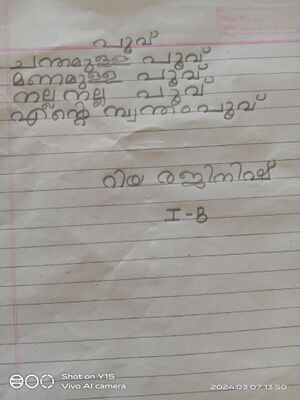 പൂവ്
ചന്തമുള്ള പൂവ്
മണമുള്ള പൂവ്
നല്ല നല്ല പൂവ്
എന്റെ സ്വന്തം പൂവ്
റിയ രജിനിഷ്
I-B
Shot on Y15
Vivo AI camera
2024.03.07 13:50